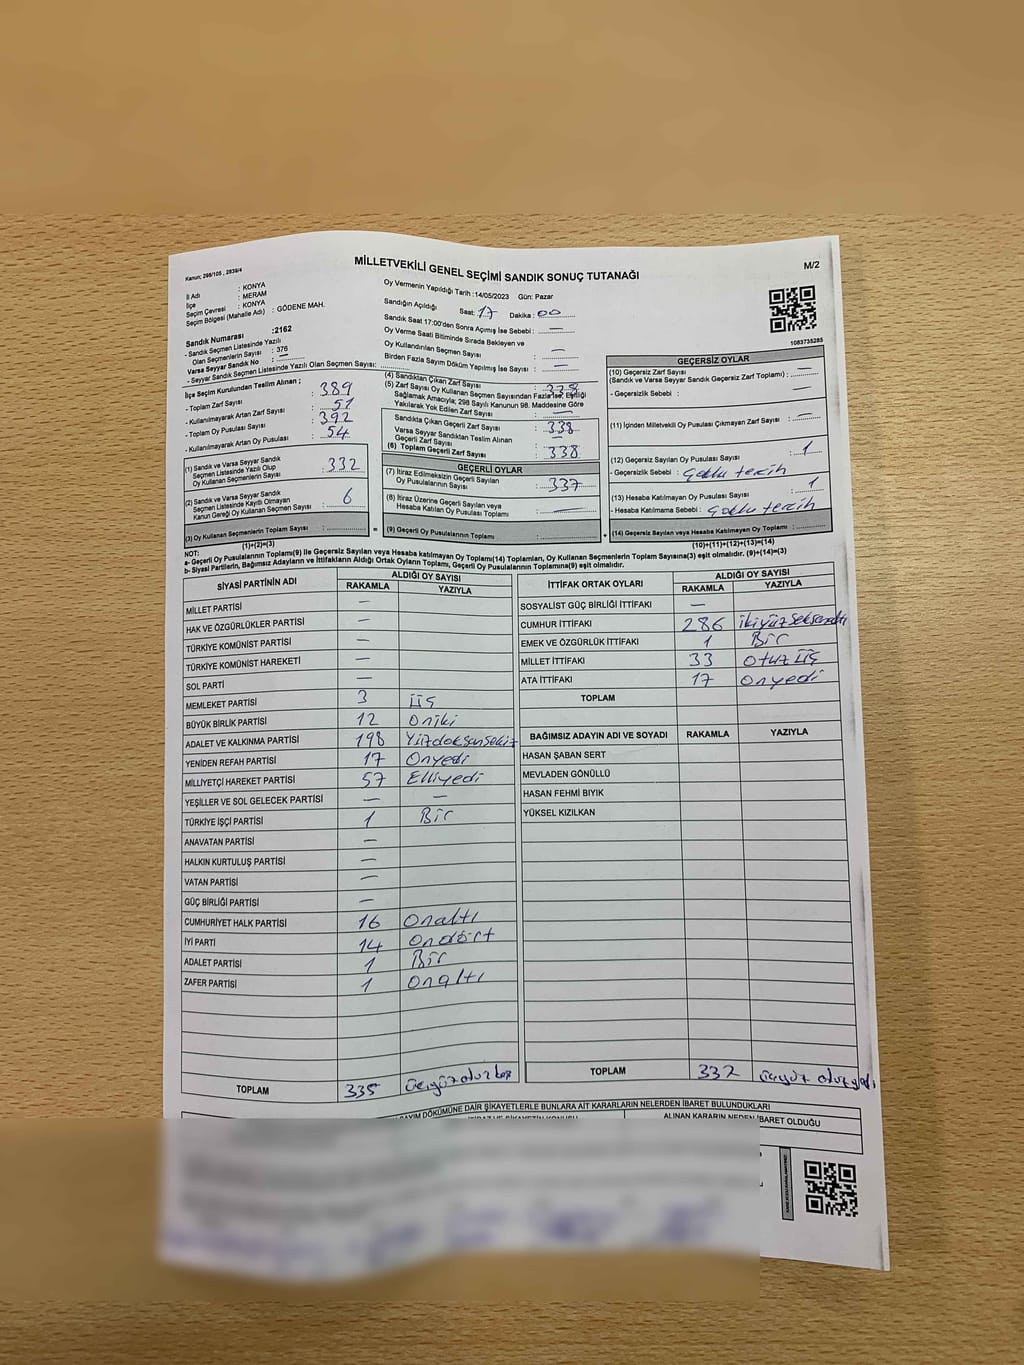 Kanun; 298/105 , 2839/4
MİLLETVEKİLİ GENEL SEÇİMİ SANDIK SONUÇ TUTANAĞI
M/2
İl Adı : KONYA
İlçe : MERAM
Seçim Çevresi : KONYA
Seçim Bölgesi (Mahalle Adı) : GÖDENE MAH.
Sandık Numarası :2162
- Sandık Seçmen Listesinde Yazılı
Olan Seçmenlerin Sayısı : 376
Varsa Seyyar Sandık No : —
- Seyyar Sandık Seçmen Listesinde Yazılı Olan Seçmen Sayısı:
İlçe Seçim Kurulundan Teslim Alınan ;
- Toplam Zarf Sayısı : 389
- Kullanılmayarak Artan Zarf Sayısı : 51
- Toplam Oy Pusulası Sayısı : 392
- Kullanılmayarak Artan Oy Pusulası : 54
(1) Sandık ve Varsa Seyyar Sandık
Seçmen Listesinde Yazılı Olup
Oy Kullanan Seçmenlerin Sayısı : 332
(2) Sandık ve Varsa Seyyar Sandık
Seçmen Listesinde Kayıtlı Olmayan
Kanun Gereği Oy Kullanan Seçmen Sayısı : 6
(3) Oy Kullanan Seçmenlerin Toplam Sayısı :
(1)+(2)=(3)
Oy Vermenin Yapıldığı Tarih :14/05/2023 Gün: Pazar
Sandığın Açıldığı Saat: 17 Dakika : 00
Sandık Saat 17:00'den Sonra Açımış İse Sebebi : —
Oy Verme Saati Bitiminde Sırada Bekleyen ve
Oy Kullandırılan Seçmen Sayısı : —
Birden Fazla Sayım Döküm Yapılmış İse Sayısı : —
(4) Sandıktan Çıkan Zarf Sayısı : 338
(5) Zarf Sayısı Oy Kullanan Seçmen Sayısından Fazla ise, Eşitliği
Sağlamak Amacıyla; 298 Sayılı Kanunun 98. Maddesine Göre
Yakılarak Yok Edilen Zarf Sayısı : —
Sandıkta Çıkan Geçerli Zarf Sayısı : 338
Varsa Seyyar Sandıktan Teslim Alınan
Geçerli Zarf Sayısı : —
(6) Toplam Geçerli Zarf Sayısı : 338
GEÇERLİ OYLAR
(7) İtiraz Edilmeksizin Geçerli Sayılan
Oy Pusulalarının Sayısı : 337
(8) İtiraz Üzerine Geçerli Sayılan veya
Hesaba Katılan Oy Pusulası Toplamı : —
= (9) Geçerli Oy Pusulalarının Toplamı :
1083735285
GEÇERSİZ OYLAR
(10) Geçersiz Zarf Sayısı
(Sandık ve Varsa Seyyar Sandık Geçersiz Zarf Toplamı) : —
- Geçersizlik Sebebi : —
(11) İçinden Milletvekili Oy Pusulası Çıkmayan Zarf Sayısı : —
(12) Geçersiz Sayılan Oy Pusulası Sayısı : 1
- Geçersizlik Sebebi : Çoklu tercih
(13) Hesaba Katılmayan Oy Pusulası Sayısı : 1
- Hesaba Katılmama Sebebi : Çoklu tercih
+ (14) Geçersiz Sayılan veya Hesaba Katılmayan Oy Toplamı :
(10)+(11)+(12)+(13)=(14)
NOT:
a- Geçerli Oy Pusulalarının Toplamı(9) ile Geçersiz Sayılan veya Hesaba katılmayan Oy Toplamı(14) Toplamları, Oy Kullanan Seçmenlerin Toplam Sayısına(3) eşit olmalıdır. (9)+(14)=(3)
b- Siyasi Partilerin, Bağımsız Adayların ve İttifakların Aldığı Ortak Oyların Toplamı, Geçerli Oy Pusulalarının Toplamına(9) eşit olmalıdır.
SİYASİ PARTİNİN ADI ALDIĞI OY SAYISI
RAKAMLA YAZIYLA
MİLLET PARTİSİ —
HAK VE ÖZGÜRLÜKLER PARTİSİ —
TÜRKİYE KOMÜNİST PARTİSİ —
TÜRKİYE KOMÜNİST HAREKETİ —
SOL PARTİ —
MEMLEKET PARTİSİ 3 üÜş
BÜYÜK BİRLİK PARTİSİ 12 Oniki
ADALET VE KALKINMA PARTİSİ 198 Yüzdoksansekiz
YENİDEN REFAH PARTİSİ 17 Onyedi
MİLLİYETÇİ HAREKET PARTİSİ 57 Elliyedi
YEŞİLLER VE SOL GELECEK PARTİSİ — —
TÜRKİYE İŞÇİ PARTİSİ 1 Bir
ANAVATAN PARTİSİ —
HALKIN KURTULUŞ PARTİSİ —
VATAN PARTİSİ —
GÜÇ BİRLİĞİ PARTİSİ —
CUMHURİYET HALK PARTİSİ 16 Onaltı
İYİ PARTİ 14 Ondört
ADALET PARTİSİ 1 Bir
ZAFER PARTİSİ 1 Onaltı
TOPLAM 335
İTTİFAK ORTAK OYLARI ALDIĞI OY SAYISI
RAKAMLA YAZIYLA
SOSYALİST GÜÇ BİRLİĞİ İTTİFAKI —
CUMHUR İTTİFAKI 286 ikiyüzseksenaltı
EMEK VE ÖZGÜRLÜK İTTİFAKI 1 Bir
MİLLET İTTİFAKI 33 Otuzüç
ATA İTTİFAKI 17 Onyedi
TOPLAM
BAĞIMSIZ ADAYIN ADI VE SOYADI RAKAMLA YAZIYLA
HASAN ŞABAN SERT
MEVLADEN GÖNÜLLÜ
HASAN FEHMİ BIYIK
YÜKSEL KIZILKAN
TOPLAM 337
SAYIM DÖKÜMÜNE DAİR ŞİKAYETLERLE BUNLARA AİT KARARLARIN NELERDEN İBARET BULUNDUKLARI
ALINAN KARARIN NEDEN İBARET OLDUĞU